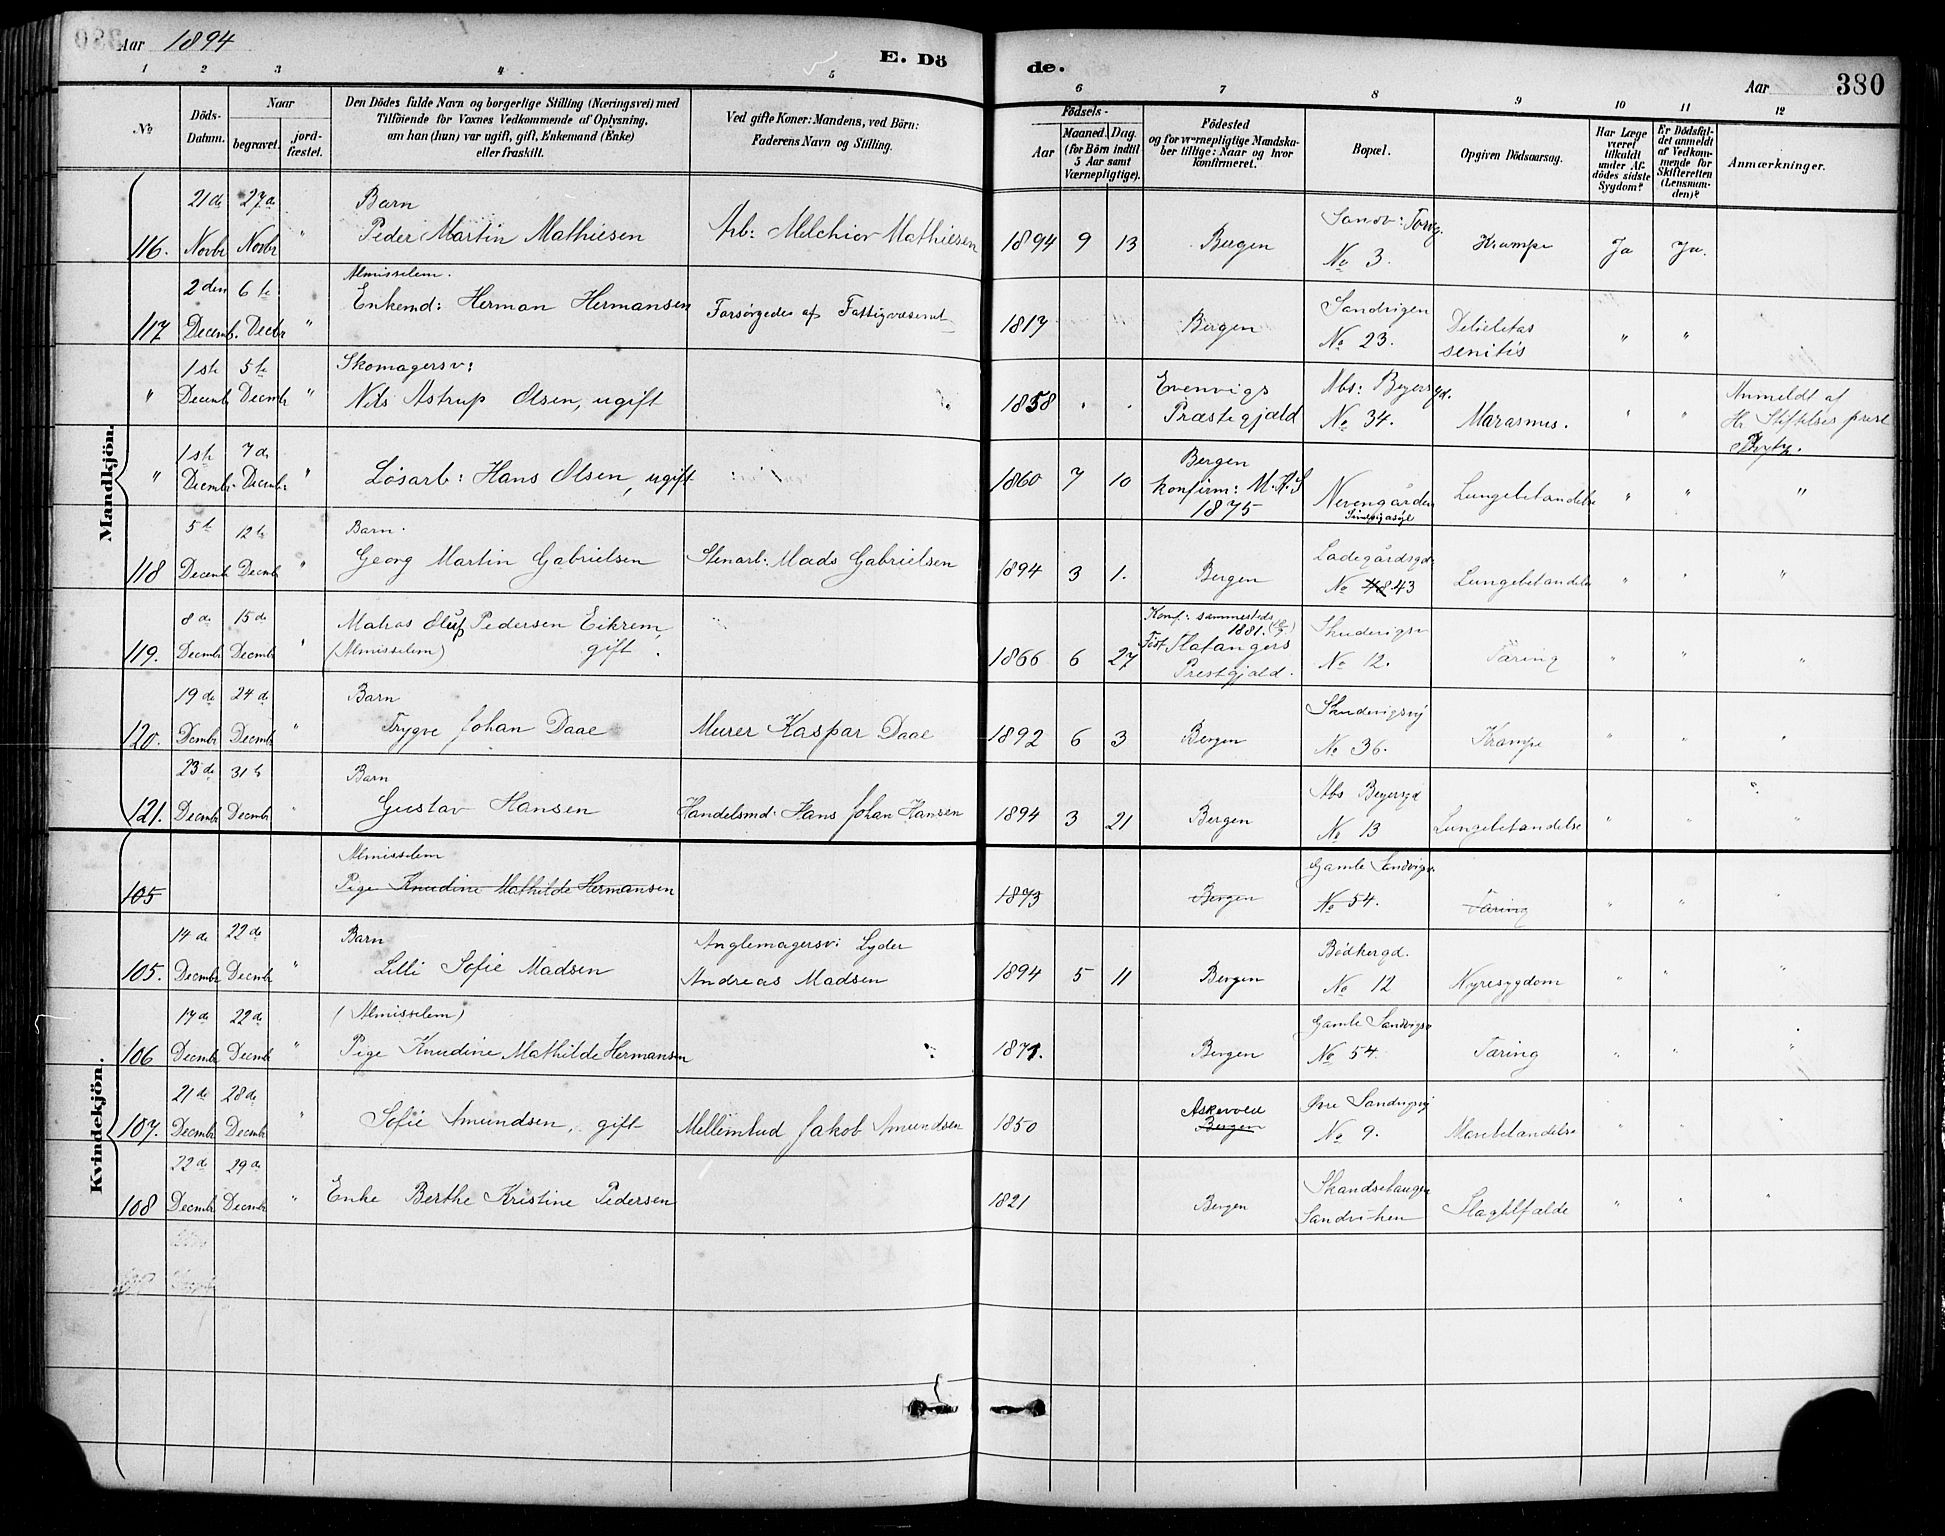 Aar 1894
E. Dö de.
Aar 380
1 2 3 4 5 6 7 8 9 10 11 12
No
Döds-Datum.
Naar
begravet.
jord-fæstet.
Den Dödes fulde Navn og borgerlige Stilling (Næringsvei) med
Tilföiende for Voxnes Vedkommende af Oplysning,
om han (hun) var ugift, gift, Enkemand (Enke)
eller fraskilt.
Ved gifte Koner: Mandens, ved Börn:
Faderens Navn og Stilling.
Födsels-
Aar
Maaned. Dag.
(for Börn indtil
5 Aar samt
Værnepligtige).
Födested
og for værnepligtige Mandska-
ber tillige: Naar og hvor
konfirmeret.
Bopæl.
Opgiven Dödsaarsag.
Har Læge
været
tilkaldt
under Af-
dödes sidste
Sygdom?
Er Dödsfal-
det anmeldt
af Vedkom-
mende for
Skifteretten
(Lensman-
den)?
Anmærkninger.
Mandkjön.
116. 21de Novbr 27de Novbr "
Barn
Peder Martin Mathiesen
Arb: Melchior Mathiesen
1894 9 13 Bergen
Sandv: Torvg.
No 3.
Krampe Ja Ja.
117. 2den Decembr. 6te Decbr "
Almisselem.
Enkemd: Herman Hermansen
Forsørgedes af Fattigvæsenet
1817 Bergen
Sandvigen
No 23.
Debilitas
senilis " "
" 1ste Decembr 5te Decmbr "
Skomagersv:
Nils Astrup Olsen, ugift
1858 " "
Evenvigs
Præstegjæld
Abs: Beyersgd.
No 34.
Marasmus. " "
Anmeldt af
Hr. Stiftelses præst
" 1ste Decmbr. 7de Decmbr "
Løsarb: Hans Olsen, ugift
1860 7 10
Bergen
Konfirm: M.K.S
1875
Nevengården
Lungebetændelse " " "
118 5te Decembr 12te Decmbr "
Barn.
Georg Martin Gabrielsen
Stenarb: Mads Gabrielsen
1894 3 1. Bergen
Ladegårdsgd
No 48 43
Lungebetændelse " " "
119. 8de Decmbr 15de Decmbr "
Matros Oluf Pedersen Eikrem,
(Almisselem) gift.
1866 6 27
Konf: sammesteds
1881.
Flatangers
Prestgjæld.
Skudevigsv
No 12.
Tæring " " "
120. 19de Dcmbr 24de Decmbr "
Barn
Trygve Johan Daae
Murer Kaspar Daae
1892 6 3 Bergen
Skudevigsvej
No 36.
Krampe " " "
121. 23de Decmbr 31te Decmbr "
Barn
Gustav Hansen
Handelsmd: Hans Johan Hansen
1894 3 21 Bergen
Abs Beyersgd
No 13
Lungebetændelse " " "
Kvindekjön.
105
Almisselem
Pige Knudine Mathilde Hermansen
1873 Bergen
Gamle Sandvigsv.
No 54.
Tæring " " "
105. 14de Decmbr 22de Decmbr "
Barn
Lilli Sofie Madsen
Anglemagersv: Lyder
Andreas Madsen
1894 5 11 Bergen
Bødkergd.
No 12
Nyresygdom " " "
106 17de Decmbr 22de Decmbr "
(Almisselem)
Pige Knudine Mathilde Hermansen
1871. Bergen
Gamle Sandvigsv
No 54.
Tæring " " "
107. 21de Decmbr 28de Decmbr "
Sofie Amundsen, gift
Mellembud Jakob Amundsen
1850
Askevold
Bergen
Øvre Sandvigsvej
No 9.
Mavebetændelse " " "
108 22de Decmbr 29de Decmbr "
Enke Berthe Kristine Pedersen
1821 Bergen
Skandsehaugen
Sandviken
Slagtilfælde " " "